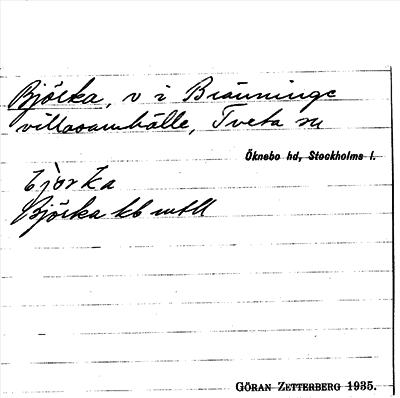 Björka, v i Bränninge
villasamhälle, Tveta sn
Öknebo hd, Stockholms l.
bjò̀rka
Björka kb mtll
GÖRAN ZETTERBERG 1935.